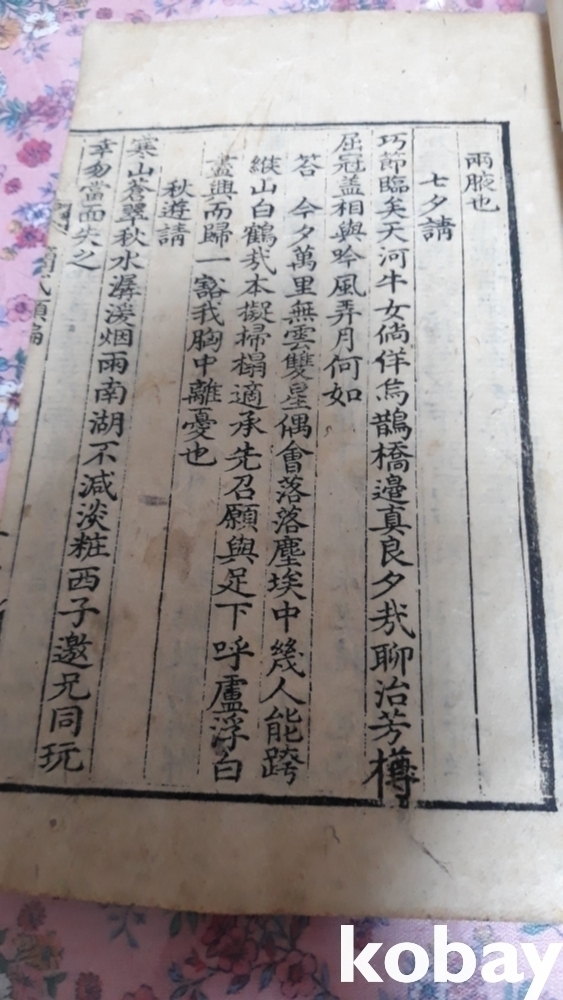 兩腋也
七夕請
巧節臨矣天河牛女倘佯烏鵲橋邉真良夕㦲聊治芳樽
屈冠盖相與吟風弄月何如
答 今夕萬里無雲雙星偶會落落塵埃中幾人能跨
緱山白鶴㦲本擬掃榻適承先召願與足下呼盧浮白
盡興而歸一豁我胸中離憂也
秋遊請
寒山蒼翠秋水潺湲烟雨南湖不减淡粧西子邀兄同玩
幸勿當面失之
kobay